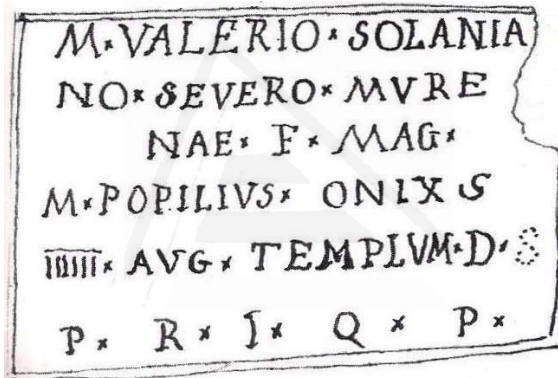 M × VALERIO × SOLANIA
NO × SEVERO × MVRE
NAE × F × MAG ×
M × POPILIVS × ONIXS
IIIIII × AVG × TEMPLVM × D × S
P × R × I × Q × P ×